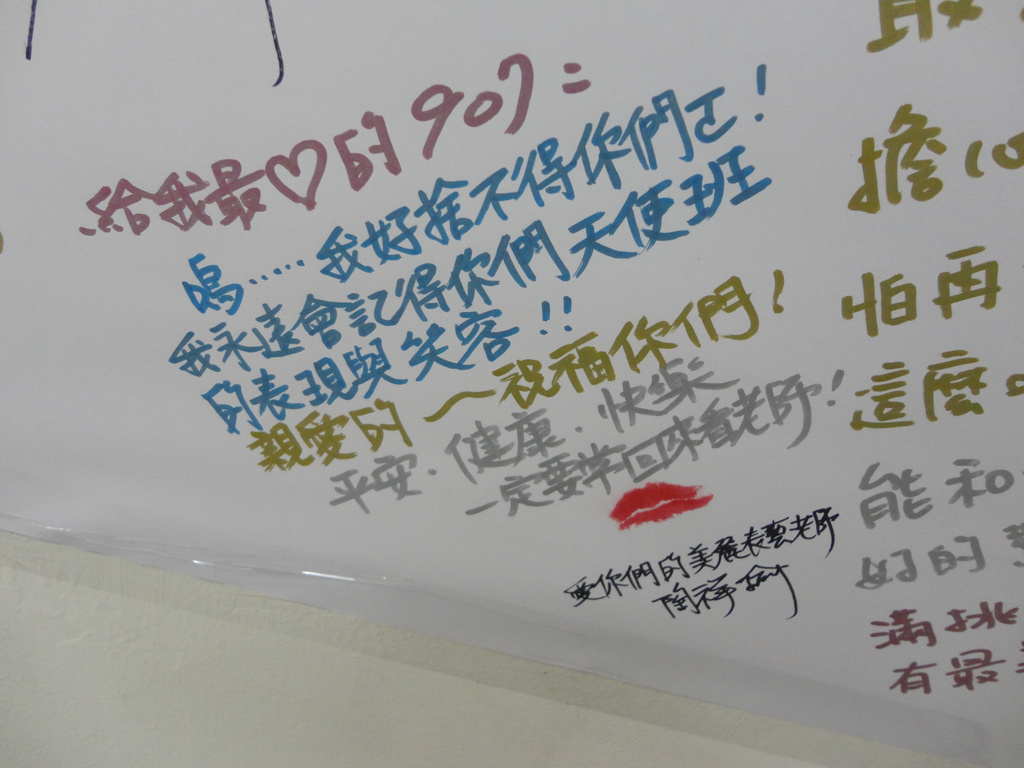 給我最♡的907：
嗚……我好捨不得你們ㄛ！
我永遠會記得你們天使班
的表現與笑容!!
親愛的～祝福你們！
平安．健康．快樂
一定要常回來看老師！
愛你們的美麗表藝老師
擔心
怕再
這麼
能和
好的
滿
有最